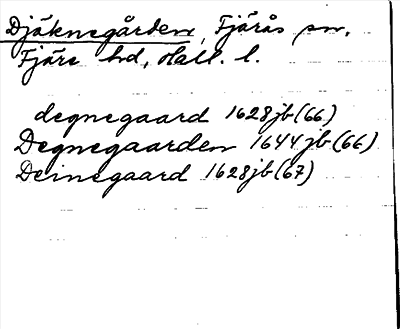 Djäknegården, Fjärås sn,
Fjäre hd, Hall. l.
degnegaard 1628 jb (66)
Degnegaarden 1644 jb (66)
Deinegaard 1628 jb (67)